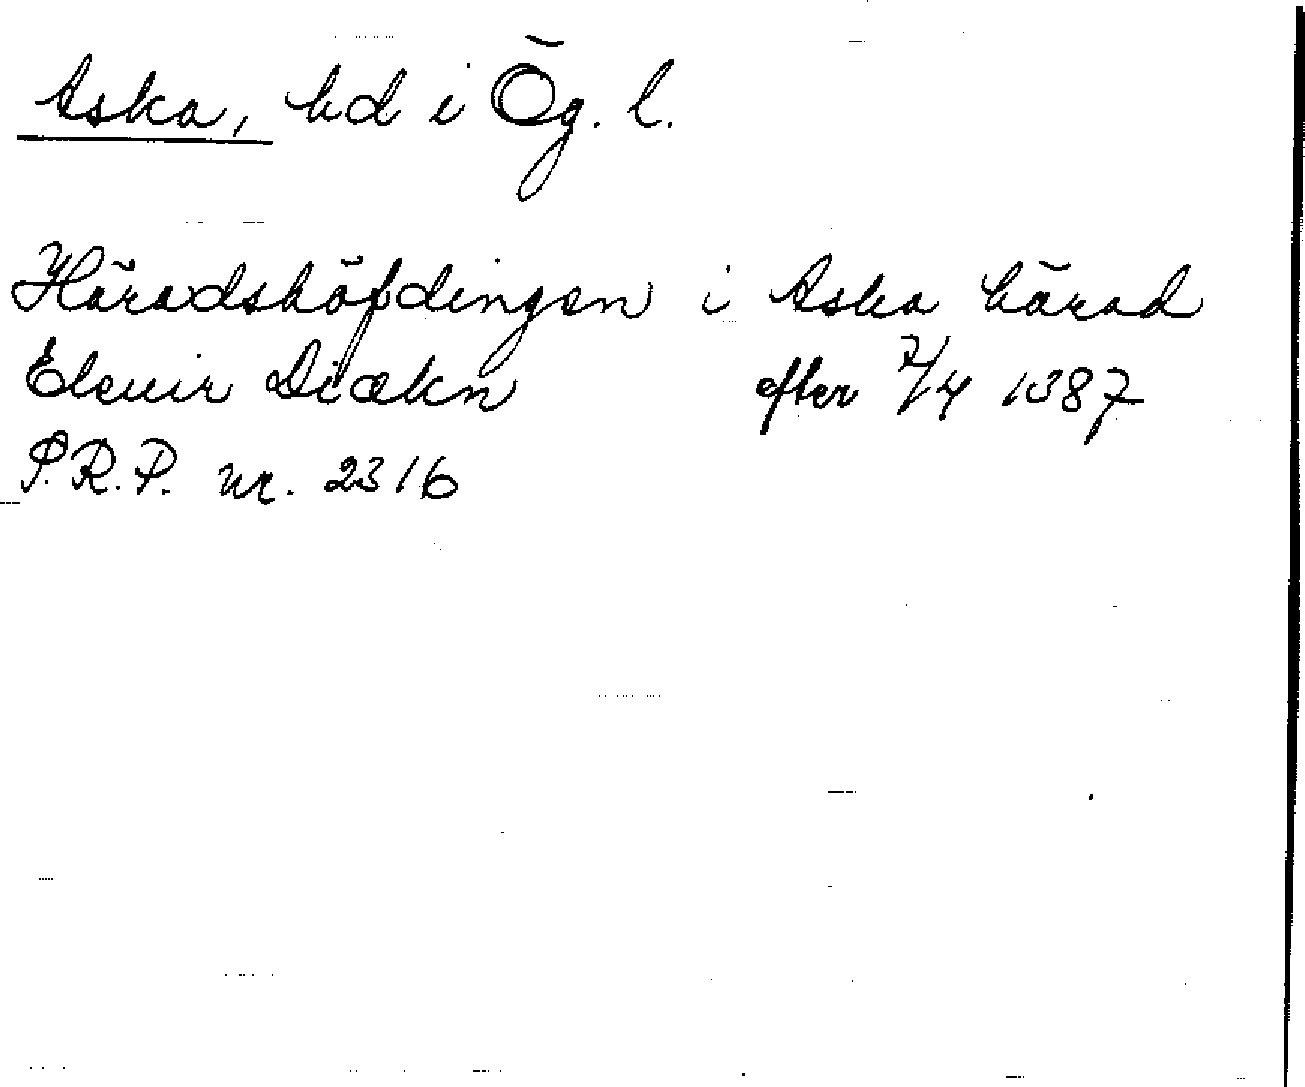 Aska, hd i Ög. l.
Häradshöfdingen i Aska härad
Elevir Diækn efter 7/4 1387
S.R.P. nr. 2316